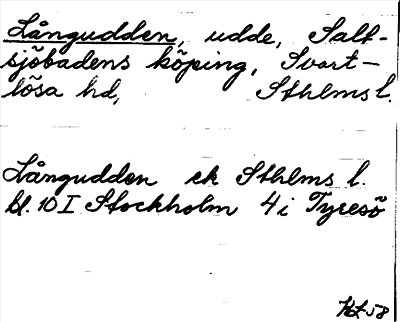 Långudden, udde, Salt-
sjöbadens köping, Svart-
lösa hd, Sthlms l.
Långudden ek Sthlms l.
bl. 10 I Stockholm 4 i Tyresö
58